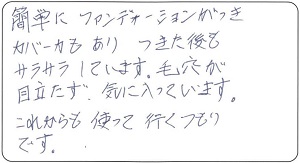 簡単に ファンデーションがつき
カバー力も あり つきた後も
サラサラしています。毛穴が
目立たず、気に入っています。
これからも 使って 行くつもり
です。